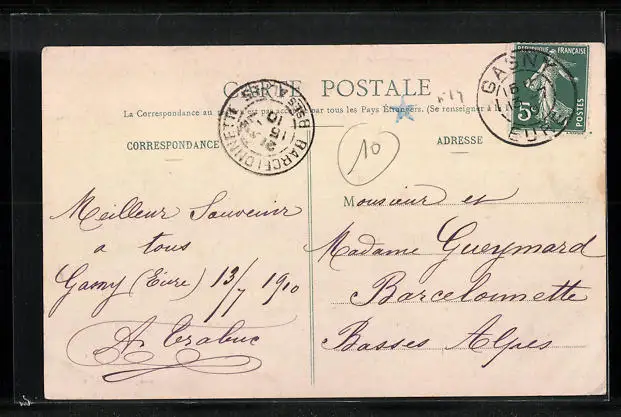 CARTE POSTALE
La Correspondance au est pas acceptée par tous les Pays Étrangers. (Se renseigner
CORRESPONDANCE
ADRESSE
RÉPUBLIQUE FRANÇAISE
5c
POSTES
GASNY
EURE
BARCELONNETTE
BSES ALPES
10
Meilleur Souvenir
a tous
Gasny (Eure) 13/7 1910
A Trabuc
Monsieur et
Madame Gueymard
Barcelonnette
Basses Alpes